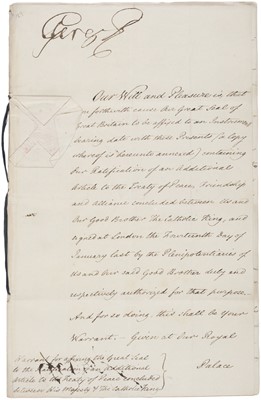 George P
Our Will and Pleasure is that
forthwith cause Our Great Seal of
Great Britain to be affixed to an Instrument
bearing date with these Presents (a Copy
whereof is hereunto annexed) containing
Our Ratification of an Additional
Article to the Treaty of Peace, Friendship
and Alliance concluded between Us and
Our Good Brother The Catholic King, and
signed at London the Fourteenth Day of
January last by the Plenipotentiaries of
Us and Our said Good Brother duly and
respectively authorized for that purpose.
And for so doing this shall be Your
Warrant. Given at Our Royal
Palace
Warrant for affixing the Great Seal
to the Ratification of an Additional
Article to the Treaty of Peace concluded
between His Majesty & The Catholic King